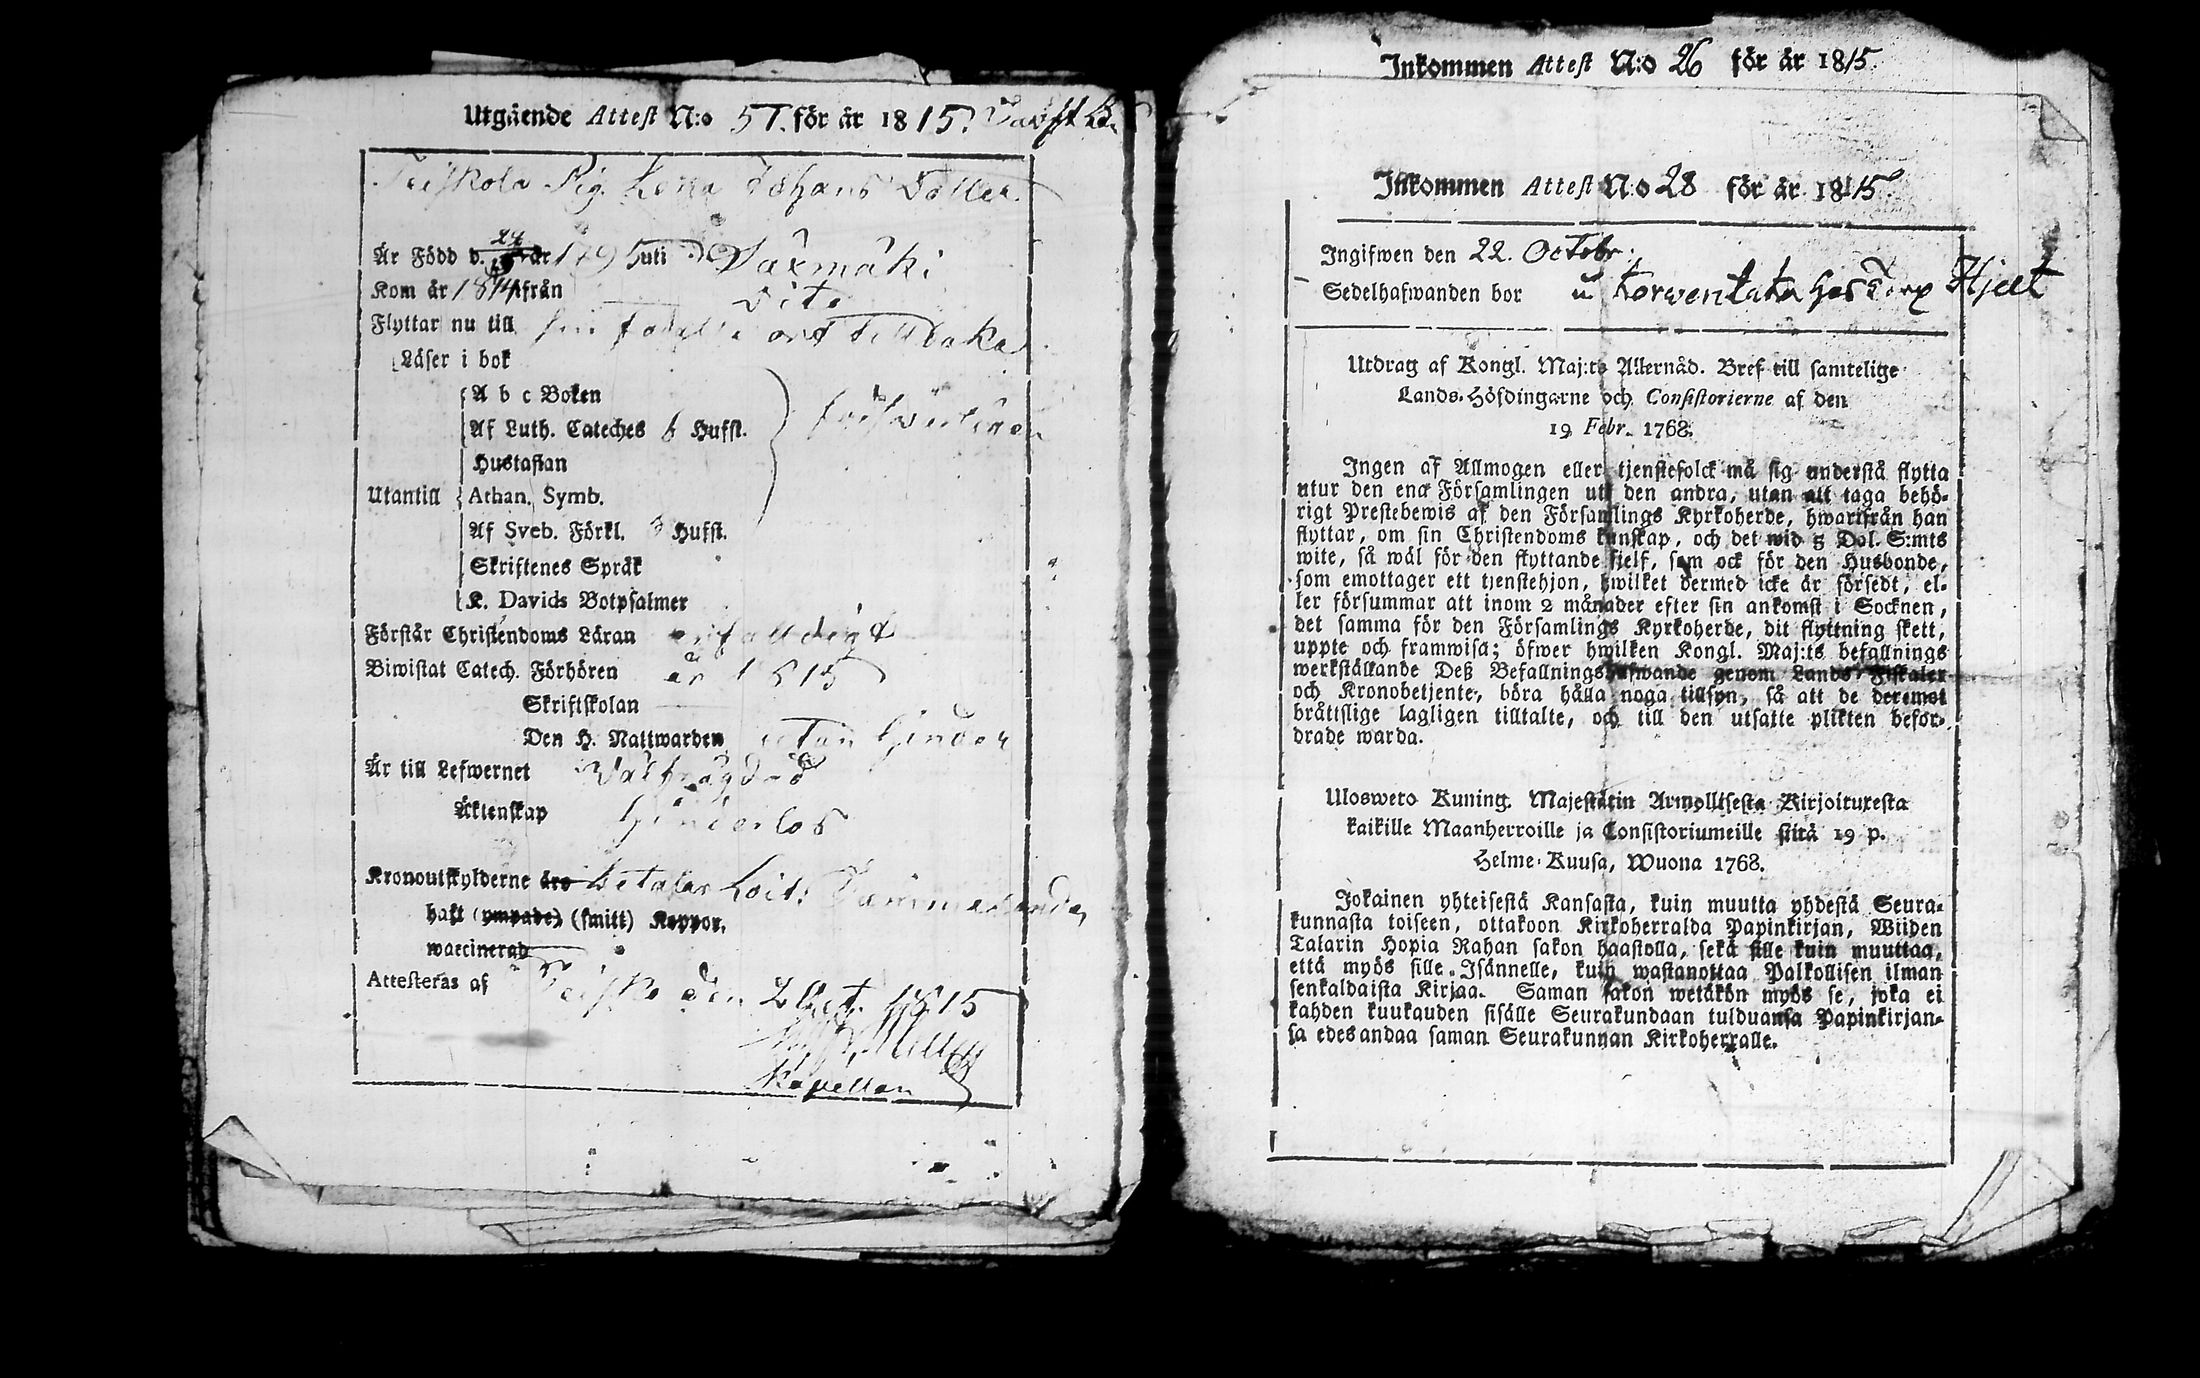 Utgående Attest N:o 57. för år 1815.
Teiskola Pig. Lena Johans Dotter
Är Född d. 24 år 1795 uti Waxmäki
Kom år 1814 ifrån dito
Flyttar nu till sin födelse ort tillbaka
Läser i bok
A b c Boken
Af Luth. Cateches 6 Hufst.
Hustaflan
Utantill Athan. Symb.
Af Sveb. Förkl. 3 Hufst.
Skriftenes Språk
K. Davids Botpsalmer
förswarligen
Förstår Christendoms Läran enfalldigt
Biwistat Catech. Förhören år 1815
Skriftskolan
Den H. Nattwarden utan hinder
Är till Lefwernet Wälfrägdad
Äktenskap hinderlös
Kronoutskylderne äro betalar
haft (ympade) (smitt) Koppor.
waccinerad
Attesteras af Teisko den 2 Oct. 1815
Kapellan
Inkommen Attest N:o 26 för år 1815
Inkommen Attest N:o 28 för år 1815
Ingifwen den 22. Octobr.
Sedelhafwanden bor Hjelt
Utdrag af Kongl. Maj:ts Allernåd. Bref till samtelige
Lands-Höfdingarne och Consistorierne af den
19 Febr. 1768.
Ingen af Allmogen eller tjenstefolck må sig understå flytta
utur den ena Församlingen uti den andra, utan att taga behö-
rigt Prestebewis af den Församlings Kyrkoherde, hwarifrån han
flyttar, om sin Christendoms kunskap, och det wid 5 Dal. S:mts
wite, så wäl för den flyttande sjelf, som ock för den Husbonde,
som emottager ett tjenstehjon, hwilket dermed icke är försedt, el-
ler försummar att inom 2 månader efter sin ankomst i Socknen,
det samma för den Församlings Kyrkoherde, dit flyttning skett,
uppte och framwisa; öfwer hwilken Kongl. Maj:ts befallnings
werkställande Deß Befallningshafwande genom Lands Fiskaler
och Kronobetjente, böra hålla noga tillsyn, så att de deremot
bråttslige lagligen tilltalte, och till den utsatte plikten befor-
drade warda.
Uloswero Kuning. Majestätin Armollisesta Kirjoituxesta
kaikille Maanherroille ja Consistoriumeille siitä 19 p.
Helme-Kuusa, Wuona 1768.
Jokainen yhteisestä Kansasta, kuin muutta yhdestä Seura-
kunnasta toiseen, ottakoon Kirkoherralda Papinkirjan, Wiiden
Talarin Hopia Rahan sakon haastolla, sekä sille kuin muuttaa,
että myös sille Isännelle, kuin wastanottaa Palkollisen ilman
senkaldaista Kirjaa. Saman sakon wetäkön myös se, joka ei
kahden kuukauden sisälle Seurakundaan tulduansa Papinkirjan-
sa edesandaa saman Seurakunnan Kirkoherralle.